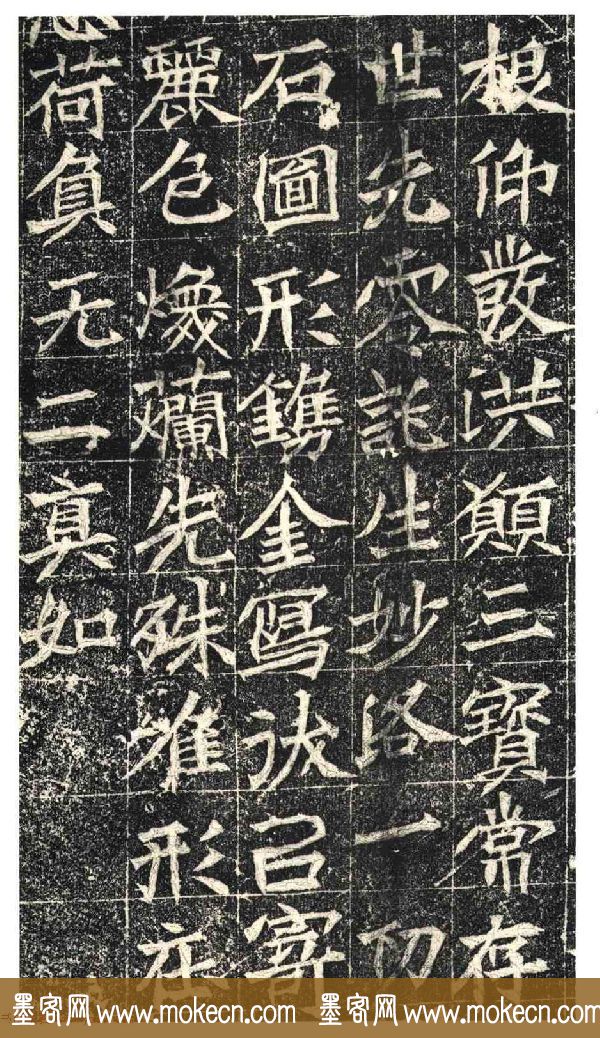 根仰發洪願三寶常存
世先霊託生妙洛一切
石圖形鐫金寫狀㠯寄
麗色煥爛光殊雖形在
荷負无二真如
墨客网 www.mokecn.com 墨客网 www.mokecn.com